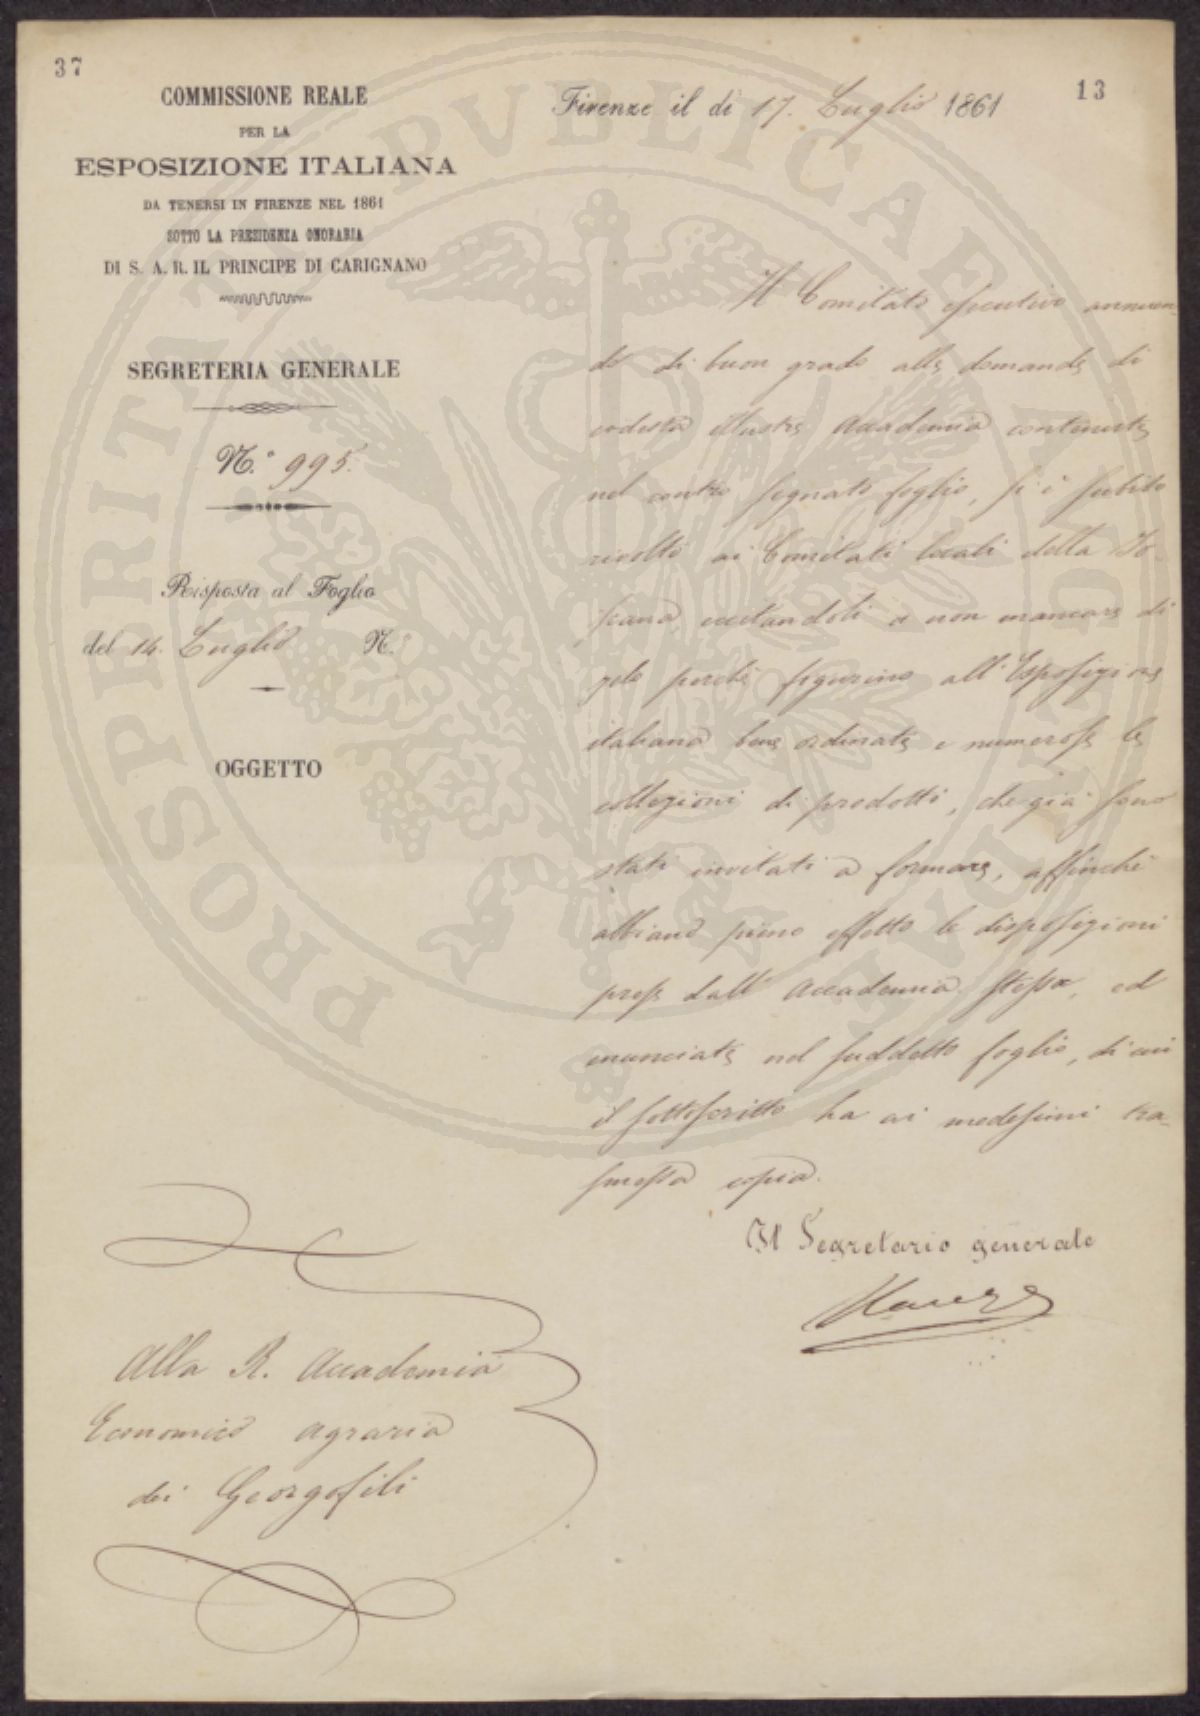 37
13
COMMISSIONE REALE
PER LA
ESPOSIZIONE ITALIANA
DA TENERSI IN FIRENZE NEL 1861
SOTTO LA PRESIDENZA ONORARIA
DI S. A. R. IL PRINCIPE DI CARIGNANO
SEGRETERIA GENERALE
N.° 995.
Risposta al Foglio
del 14. Luglio N.°
OGGETTO
Firenze il dì 17. Luglio 1861
Il Comitato esecutivo annuen-
do di buon grado alla domanda di
codesta illustre Accademia contenuta
nel contro segnato foglio, si è subito
rivolto ai Comitati locali della To-
scana eccitandoli a non mancare di
zelo perché figurino all'Esposizione
italiana bene ordinate e numerose le
collezioni di prodotti, che già sono
stati invitati a formare, affinché
abbiano pieno effetto le disposizioni
prese dall'Accademia stessa, ed
enunciate nel suddetto foglio, di cui
il sottoscritto ha ai medesimi tra-
smessa copia.
Il Segretario generale
Alla R. Accademia
Economico agraria
dei Georgofili
PROSPERITATI PVBLICAE AVGENDAE